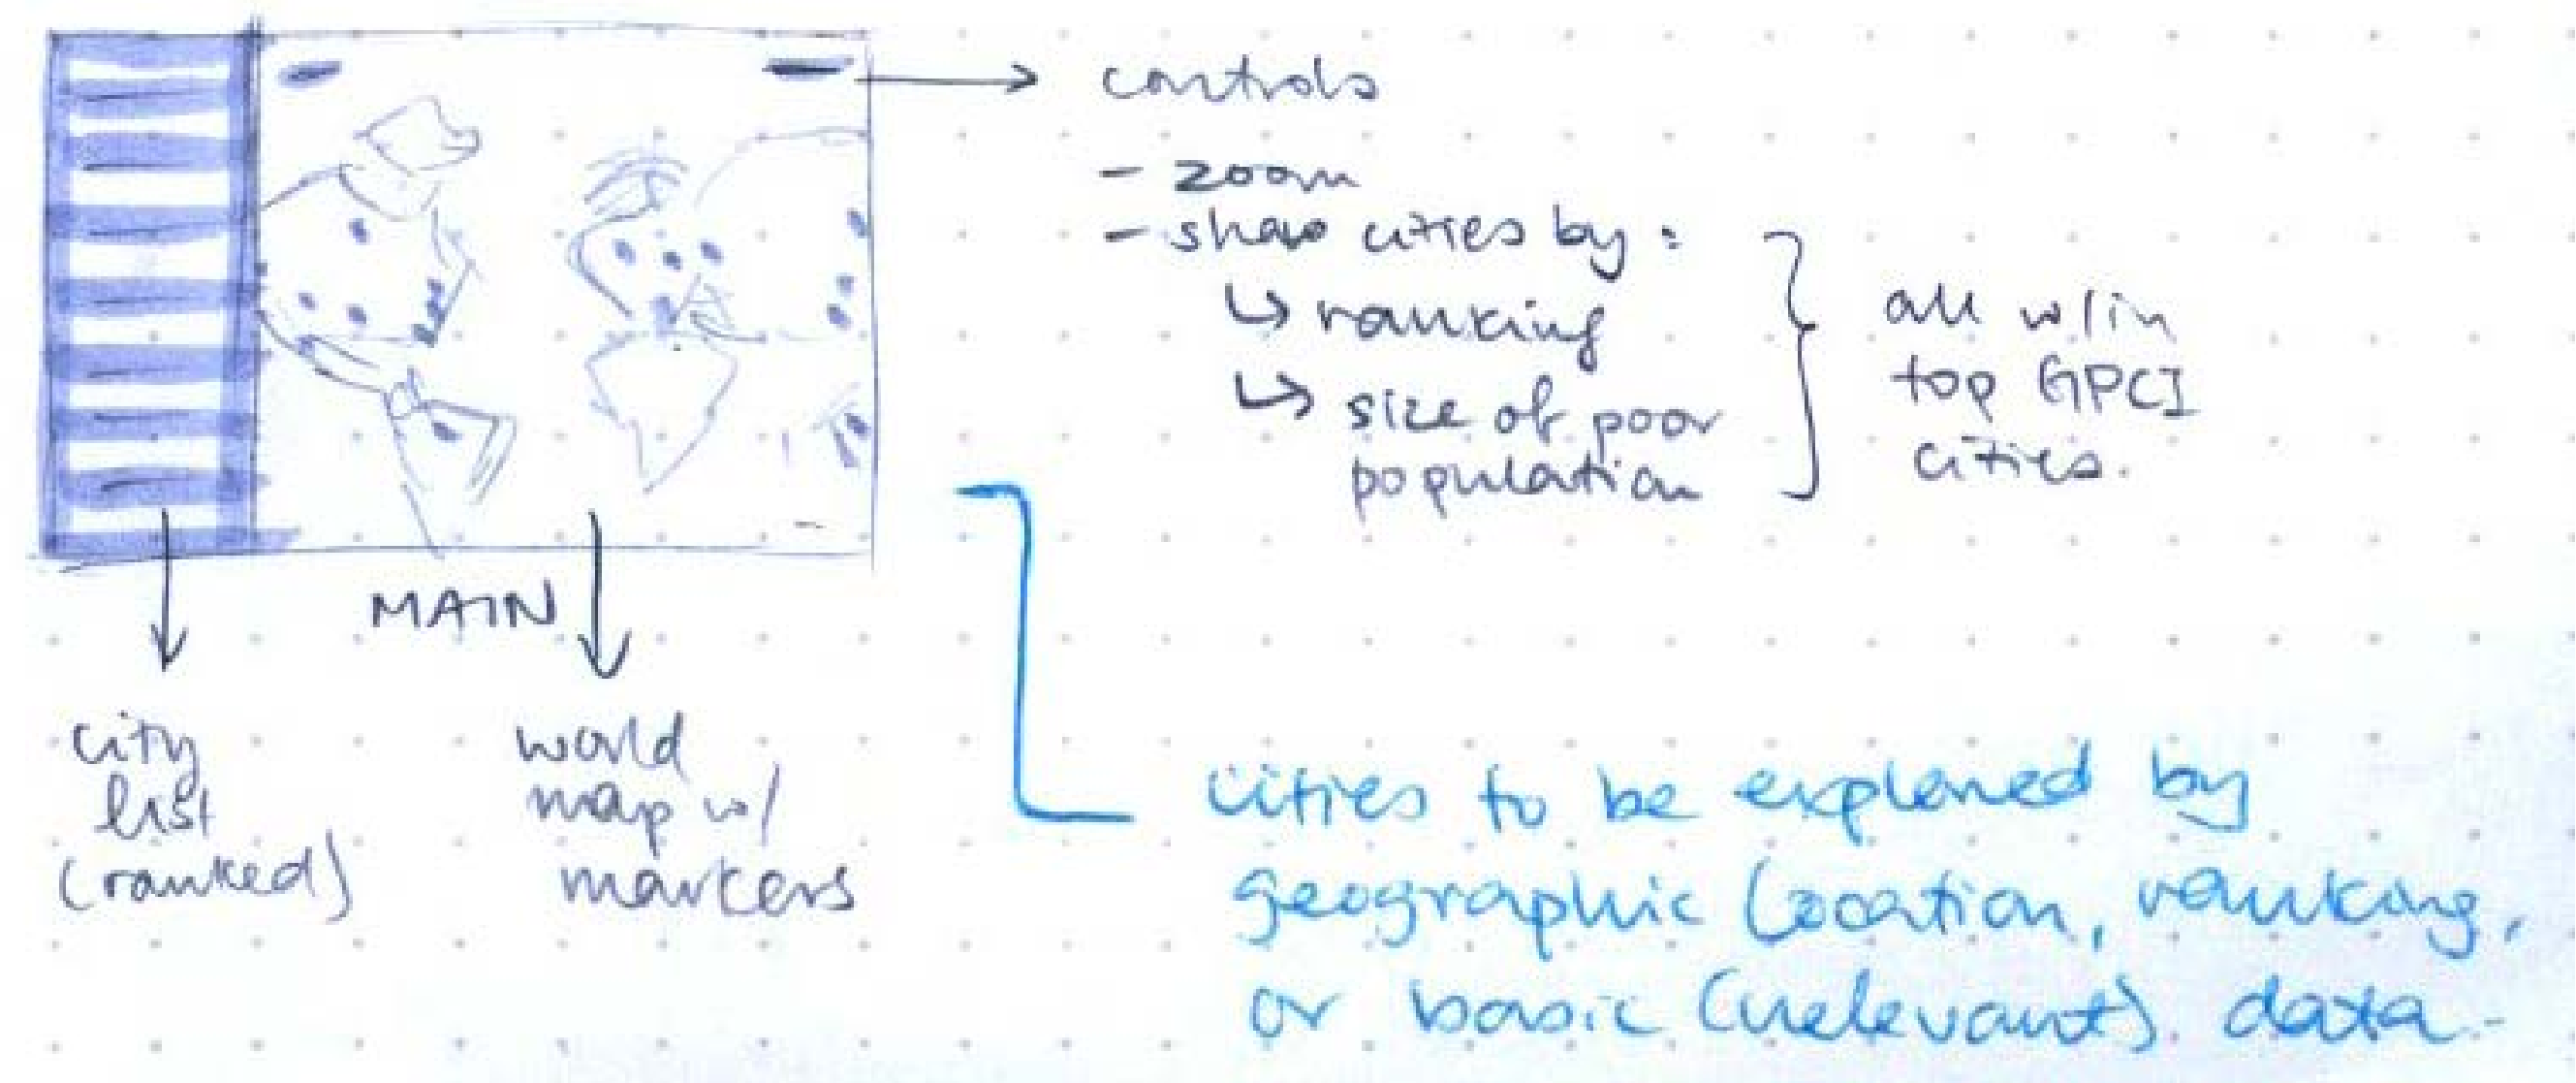 controls
- zoom
- show cities by:
↳ ranking
↳ size of poor
population
all w/in
top GPCI
cities.
MAIN
city
list
(ranked)
world
map w/
markers
cities to be explored by
geographic location, ranking,
or basic (relevant) data.